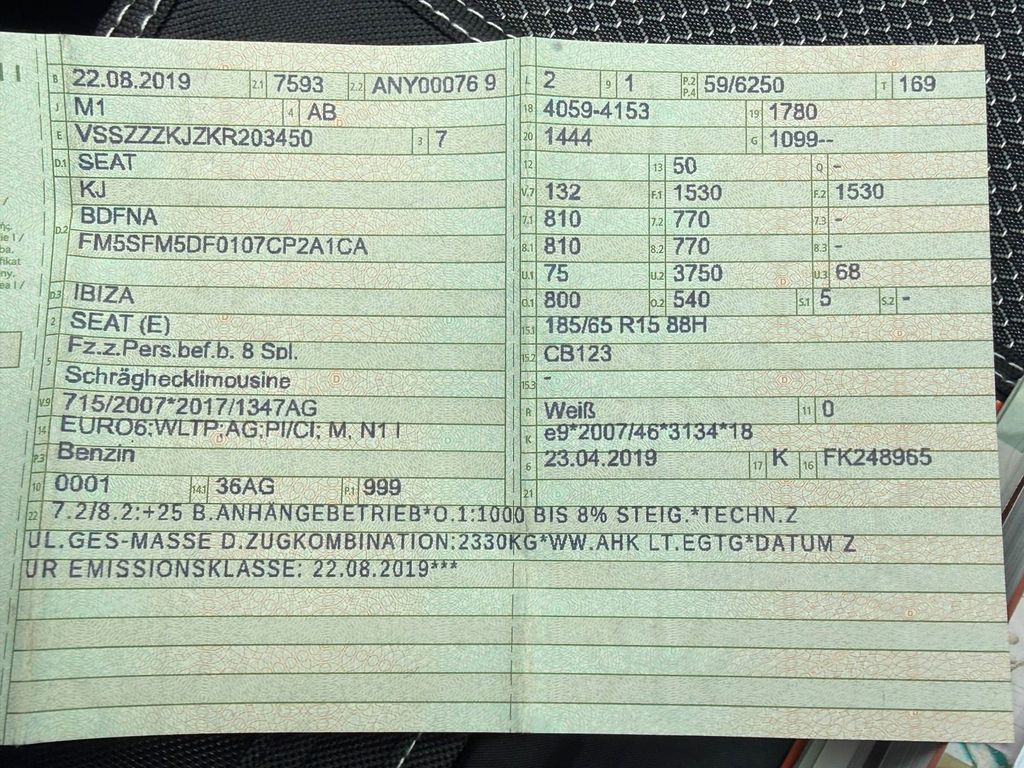 B 22.08.2019 2.1 7593 2.2 ANY00076 9
J M1 4 AB
E VSSZZZKJZKR203450 3 7
D.1 SEAT
D.2 KJ
BDFNA
FM5SFM5DF0107CP2A1CA
D.3 IBIZA
2 SEAT (E)
5 Fz.z.Pers.bef.b. 8 Spl.
Schräghecklimousine
V.9 715/2007*2017/1347AG
14 EURO6;WLTP;AG;PI/CI; M, N1 I
P.3 Benzin
10 0001 14.1 36AG P.1 999
L 2 9 1 P.2 P.4 59/6250 T 169
18 4059-4153 19 1780
20 1444 G 1099--
12 13 50 Q -
V.7 132 F.1 1530 F.2 1530
7.1 810 7.2 770 7.3 -
8.1 810 8.2 770 8.3 -
U.1 75 U.2 3750 U.3 68
O.1 800 O.2 540 S.1 5 S.2 -
15.1 185/65 R15 88H
15.2 CB123
15.3 -
R Weiß 11 0
K e9*2007/46*3134*18
6 23.04.2019 17 K 16 FK248965
21
22 7.2/8.2:+25 B.ANHÄNGEBETRIEB*O.1:1000 BIS 8% STEIG.*TECHN.Z
UL.GES-MASSE D.ZUGKOMBINATION:2330KG*WW.AHK LT.EGTG*DATUM Z
UR EMISSIONSKLASSE: 22.08.2019***